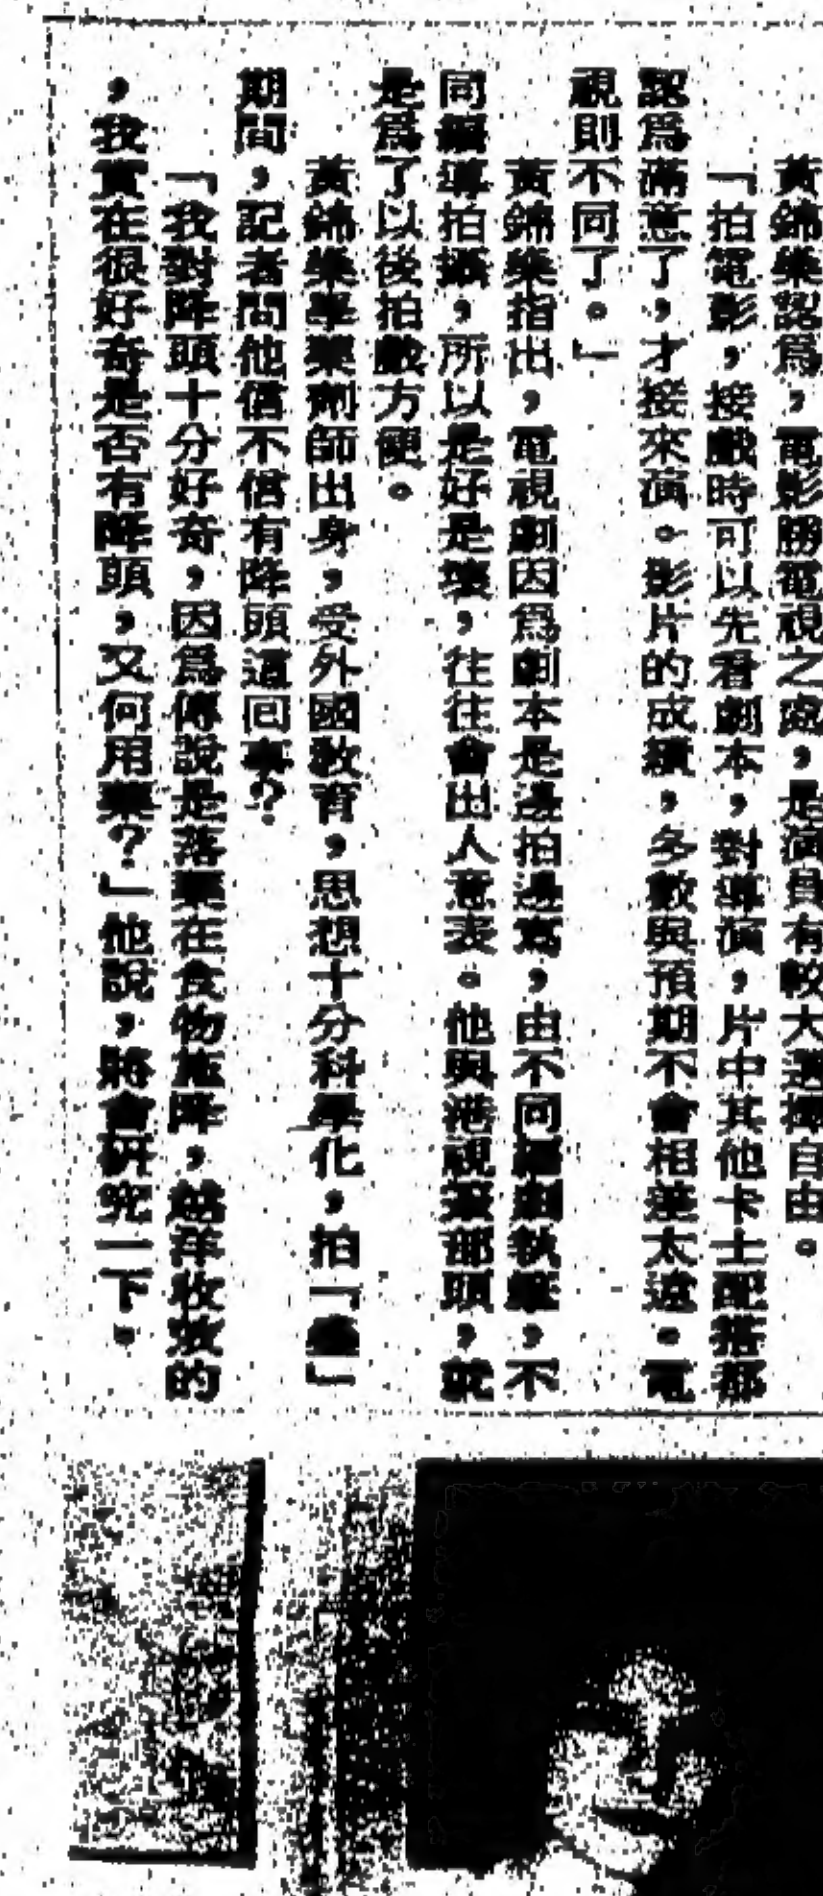 黃錦燊認爲，電影勝電視之處，是演員有較大選擇自由。
「拍電影，接戲時可以先看劇本，對導演，片中其他卡士配搭都
認爲滿意了，才接來演。影片的成績，多數與預期不會相差太遠。電
視則不同了。」
黃錦燊指出，電視劇因爲劇本是邊拍邊寫，由不同編劇執筆，不
同編導拍攝，所以是好是壞，往往會出人意表。他與港視簽部頭，就
是爲了以後拍戲方便。
黃錦燊畢藥劑師出身，受外國教育，思想十分科學化，拍「蠱」
期間，記者問他信不信有降頭這回事？
「我對降頭十分好奇，因爲傳說是落藥在食物施降，越洋收效的
，我實在很好奇是否有降頭，又何用藥？」他說，將會研究一下。